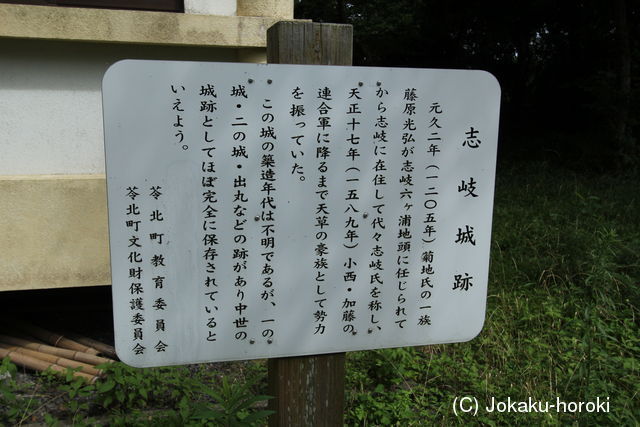 志岐城跡
元久二年（一二〇五年）菊地氏の一族
藤原光弘が志岐六ヶ浦地頭に任じられて
から志岐に在住して代々志岐氏を称し、
天正十七年（一五八九年）小西・加藤の
連合軍に降るまで天草の豪族として勢力
を振っていた。
この城の築造年代は不明であるが、一の
城・二の城・出丸などの跡があり中世の
城跡としてほぼ完全に保存されていると
いえよう。
苓北町教育委員会
苓北町文化財保護委員会
(C) Jokaku-horoki